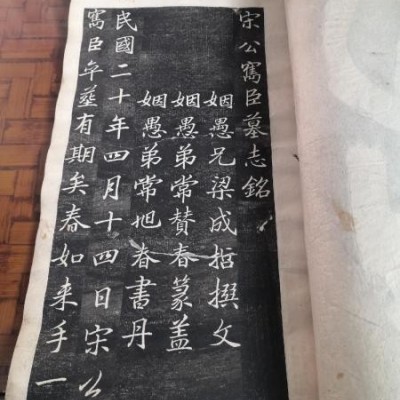 宋公寯臣墓志銘
姻愚兄梁成哲撰文
姻愚弟常賛春篆盖
姻愚弟常旭春書丹
民國二十年四月十四日宋公
寯臣卒葬有期矣春如来手一